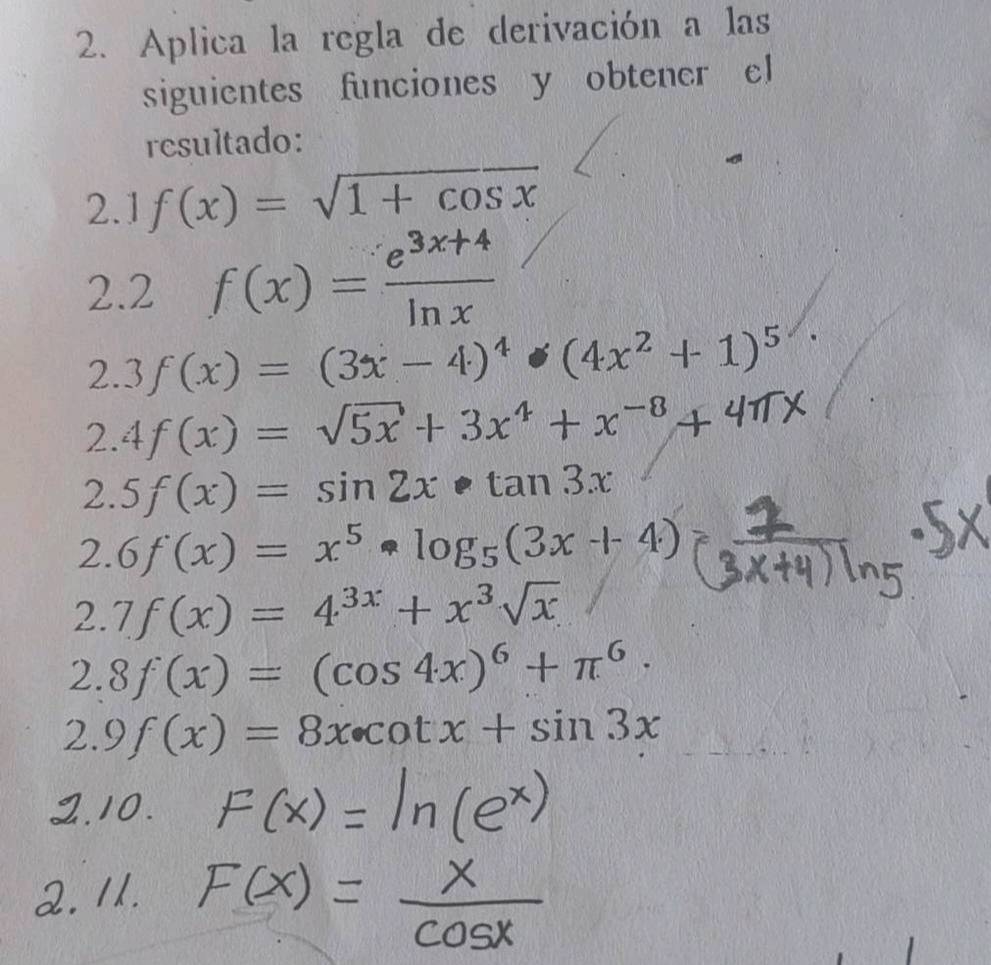 2. Aplica la regla de derivación a las
siguientes funciones y obtener el
resultado:
2.1 f(x) = √(1 + cos x)
2.2 f(x) = e^(3x+4) / ln x
2.3 f(x) = (3x − 4)⁴ • (4x² + 1)⁵
2.4 f(x) = √5x + 3x⁴ + x⁻⁸ + 4πx
2.5 f(x) = sin 2x • tan 3x
2.6 f(x) = x⁵ • log₅(3x + 4) = / (3x+4) ln5 • 5x
2.7 f(x) = 4³ˣ + x³√x
2.8 f(x) = (cos 4x)⁶ + π⁶.
2.9 f(x) = 8x•cot x + sin 3x
2.10. F(x) = ln(eˣ)
2.11. F(x) = x / cosx